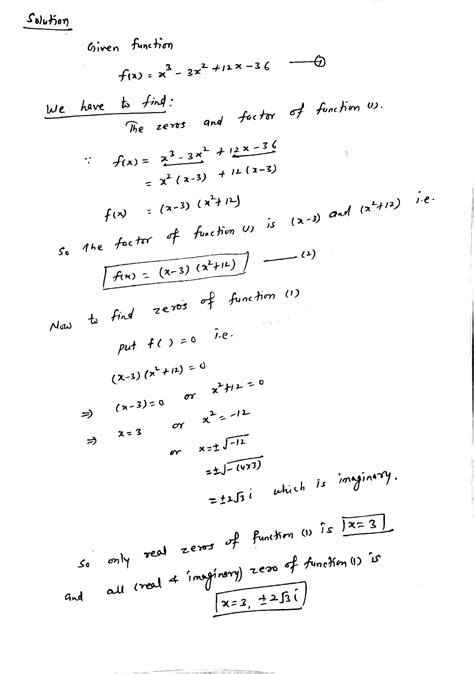 Solution
Given function
f(x) = x³ - 3x² + 12x - 36 —— ①
We have to find:
The zeros and factor of function (1).
∵ f(x) = x³ - 3x² + 12x - 36
= x² (x-3) + 12 (x-3)
f(x) = (x-3) (x²+12)
So the factor of function (1) is (x-3) and (x²+12) i.e.
f(x) = (x-3) (x²+12) —— (2)
Now to find zero's of function (1)
put f( ) = 0 i.e.
(x-3) (x²+12) = 0
⇒ (x-3) = 0 or x²+12 = 0
⇒ x = 3 or x² = -12
or x = ±√-12
= ±√-(4×3)
= ±2√3 i which is imaginary.
So only real zeros of function (1) is x = 3
and all (real & imaginary) zero of function (1) is
x = 3, ±2√3 i